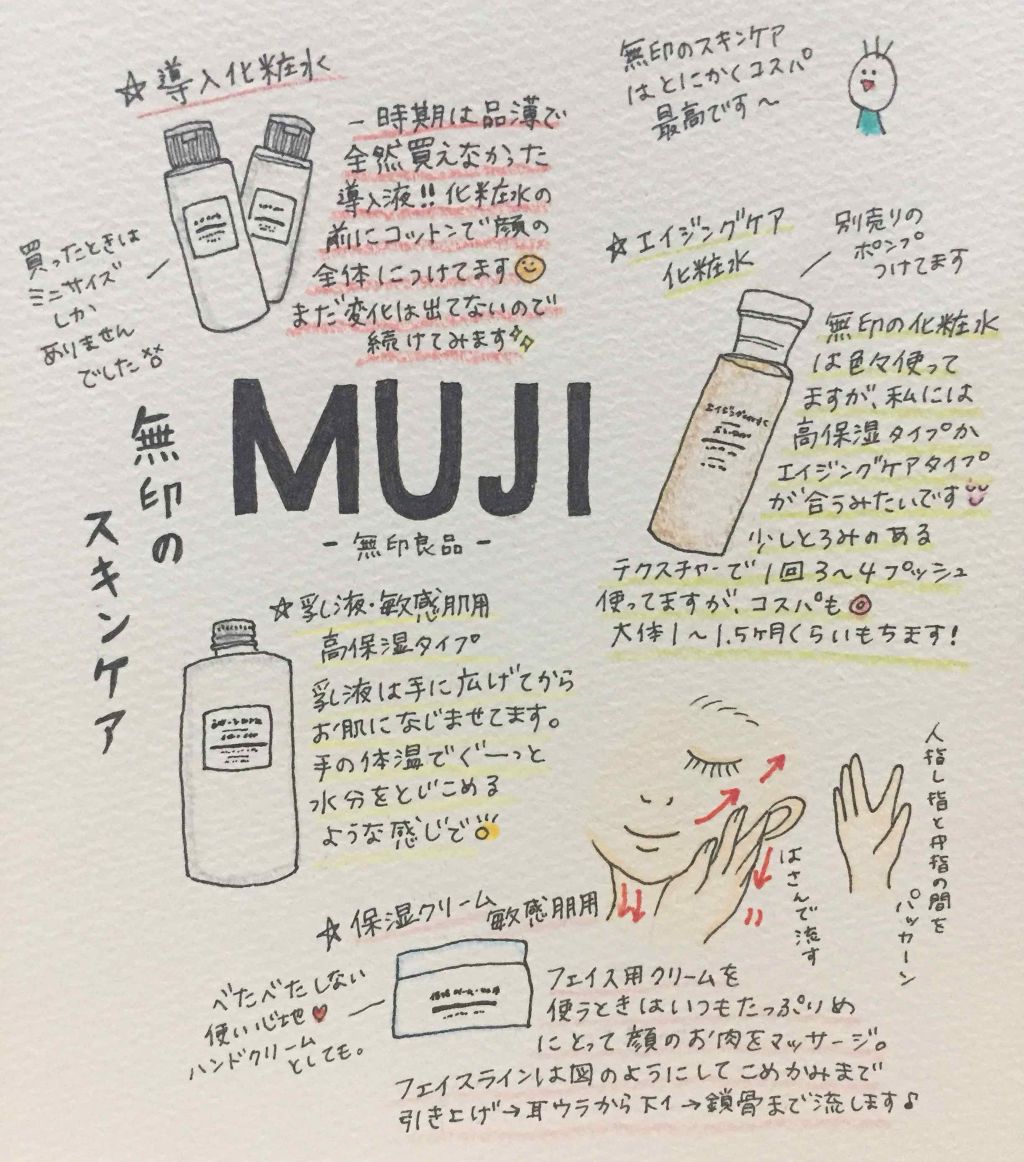 ☆導入化粧水
一時期は品薄で
全然買えなかった
導入液!!化粧水の
前にコットンで顔の
全体につけてます
まだ変化は出てないので
続けてみます
買ったときは
ミニサイズ
しか
ありません
でした
無印のスキンケア
はとにかくコスパ
最高です〜
☆エイジングケア
化粧水
別売りの
ポンプ
つけてます
無印の化粧水
は色々使って
ますが、私には
高保湿タイプか
エイジングケアタイプ
が合うみたいです
少しとろみのある
テクスチャーで1回3〜4プッシュ
使ってますが、コスパも◎
大体1〜1.5ヶ月くらいもちます!
無印の
スキンケア
MUJI
-無印良品-
☆乳液・敏感肌用
高保湿タイプ
乳液は手に広げてから
お肌になじませてます。
手の体温でぐーっと
水分をとじこめる
ような感じで
人指し指と中指の間を
パッカーン
はさんで流す
☆保湿クリーム
敏感肌用
べたべたしない
使い心地♥
ハンドクリーム
としても。
フェイス用クリームを
使うときはいつもたっぷりめ
にとって顔のお肉をマッサージ。
フェイスラインは図のようにしてこめかみまで
引き上げ→耳ウラから下へ→鎖骨まで流します♪